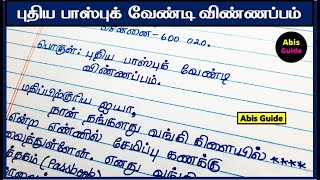 புதிய பாஸ்புக் வேண்டி விண்ணப்பம்
சென்னை-600 020.
Abis
Guide
பொருள்: புதிய பாஸ்புக் வேண்டி
விண்ணப்பம்.
மதிப்பிற்குரிய ஐயா,
நான் தங்களது வங்கி கிளையில் ****
Abis Guide
என்ற எண்ணில் சேமிப்பு கணக்கு
வைத்துள்ளேன். எனது வங்கி
(Passbook)